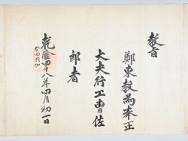 敎旨
鄭東敎爲奉正
大夫行工曹佐
郎者
乾隆四十八年四月初一日